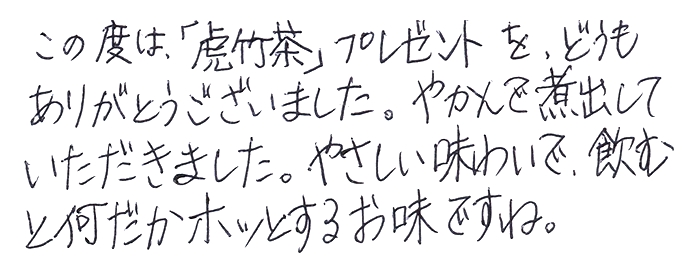 この度は、「虎竹茶」プレゼントを、どうも
ありがとうございました。やかんで煮出して
いただきました。やさしい味わいで、飲む
と何だかホッとするお味ですね。